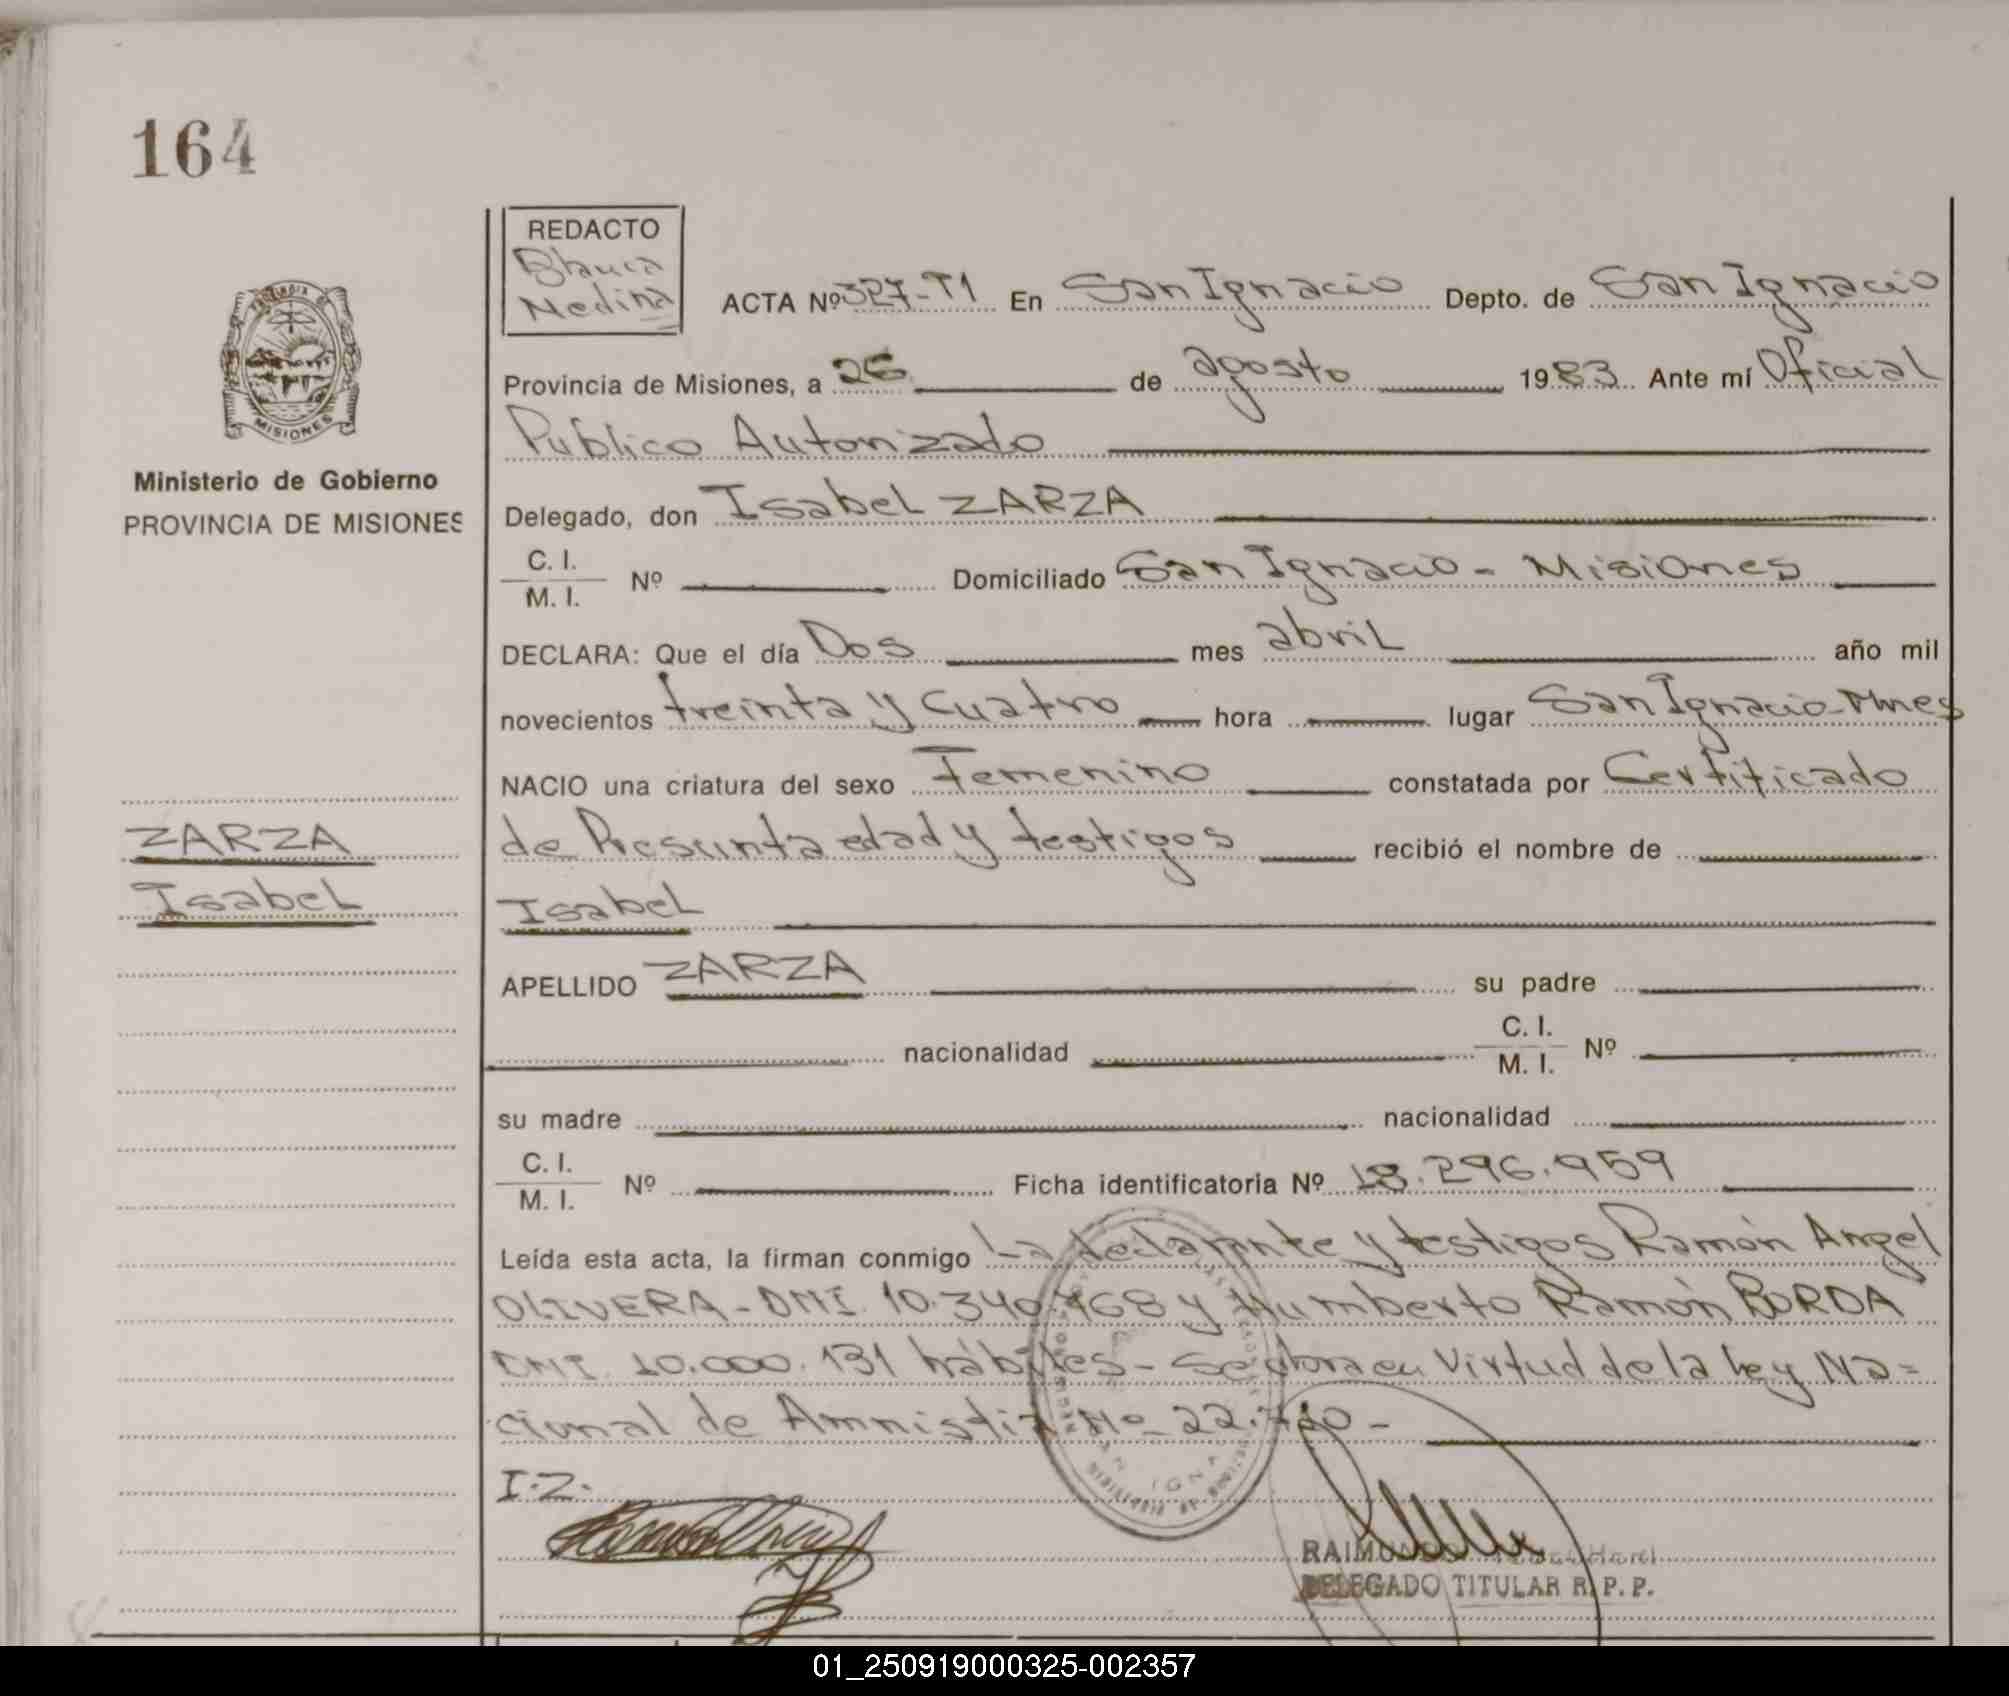 164
REDACTO
Blanca
Medina
ACTA Nº 327-T1 En San Ignacio Depto. de San Ignacio
MISIONES
Provincia de Misiones, a 26 de agosto 1983 Ante mí Oficial
Publico Autorizado
Ministerio de Gobierno
PROVINCIA DE MISIONES
Delegado, don Isabel ZARZA
C. I.
M. I. Nº Domiciliado San Ignacio - Misiones
DECLARA: Que el día Dos mes abril año mil
novecientos treinta y cuatro hora lugar San Ignacio-Mnes
NACIO una criatura del sexo Femenino constatada por Certificado
ZARZA
de Presunta edad y testigos recibió el nombre de
Isabel
Isabel
APELLIDO ZARZA su padre
nacionalidad C. I.
M. I. Nº
su madre nacionalidad
C. I.
M. I. Nº Ficha identificatoria Nº 18.296.959
Leída esta acta, la firman conmigo La declarante y testigos Ramón Angel
OLIVERA - DNI. 10.340.768 y Humberto Ramón BORDA
DNI. 10.000.131 hábiles - Se labra en Virtud de la Ley Na=
cional de Amnistia Nº 22.710 -
I.Z.
RAIMUNDO
DELEGADO TITULAR R. P. P.
01_250919000325-002357